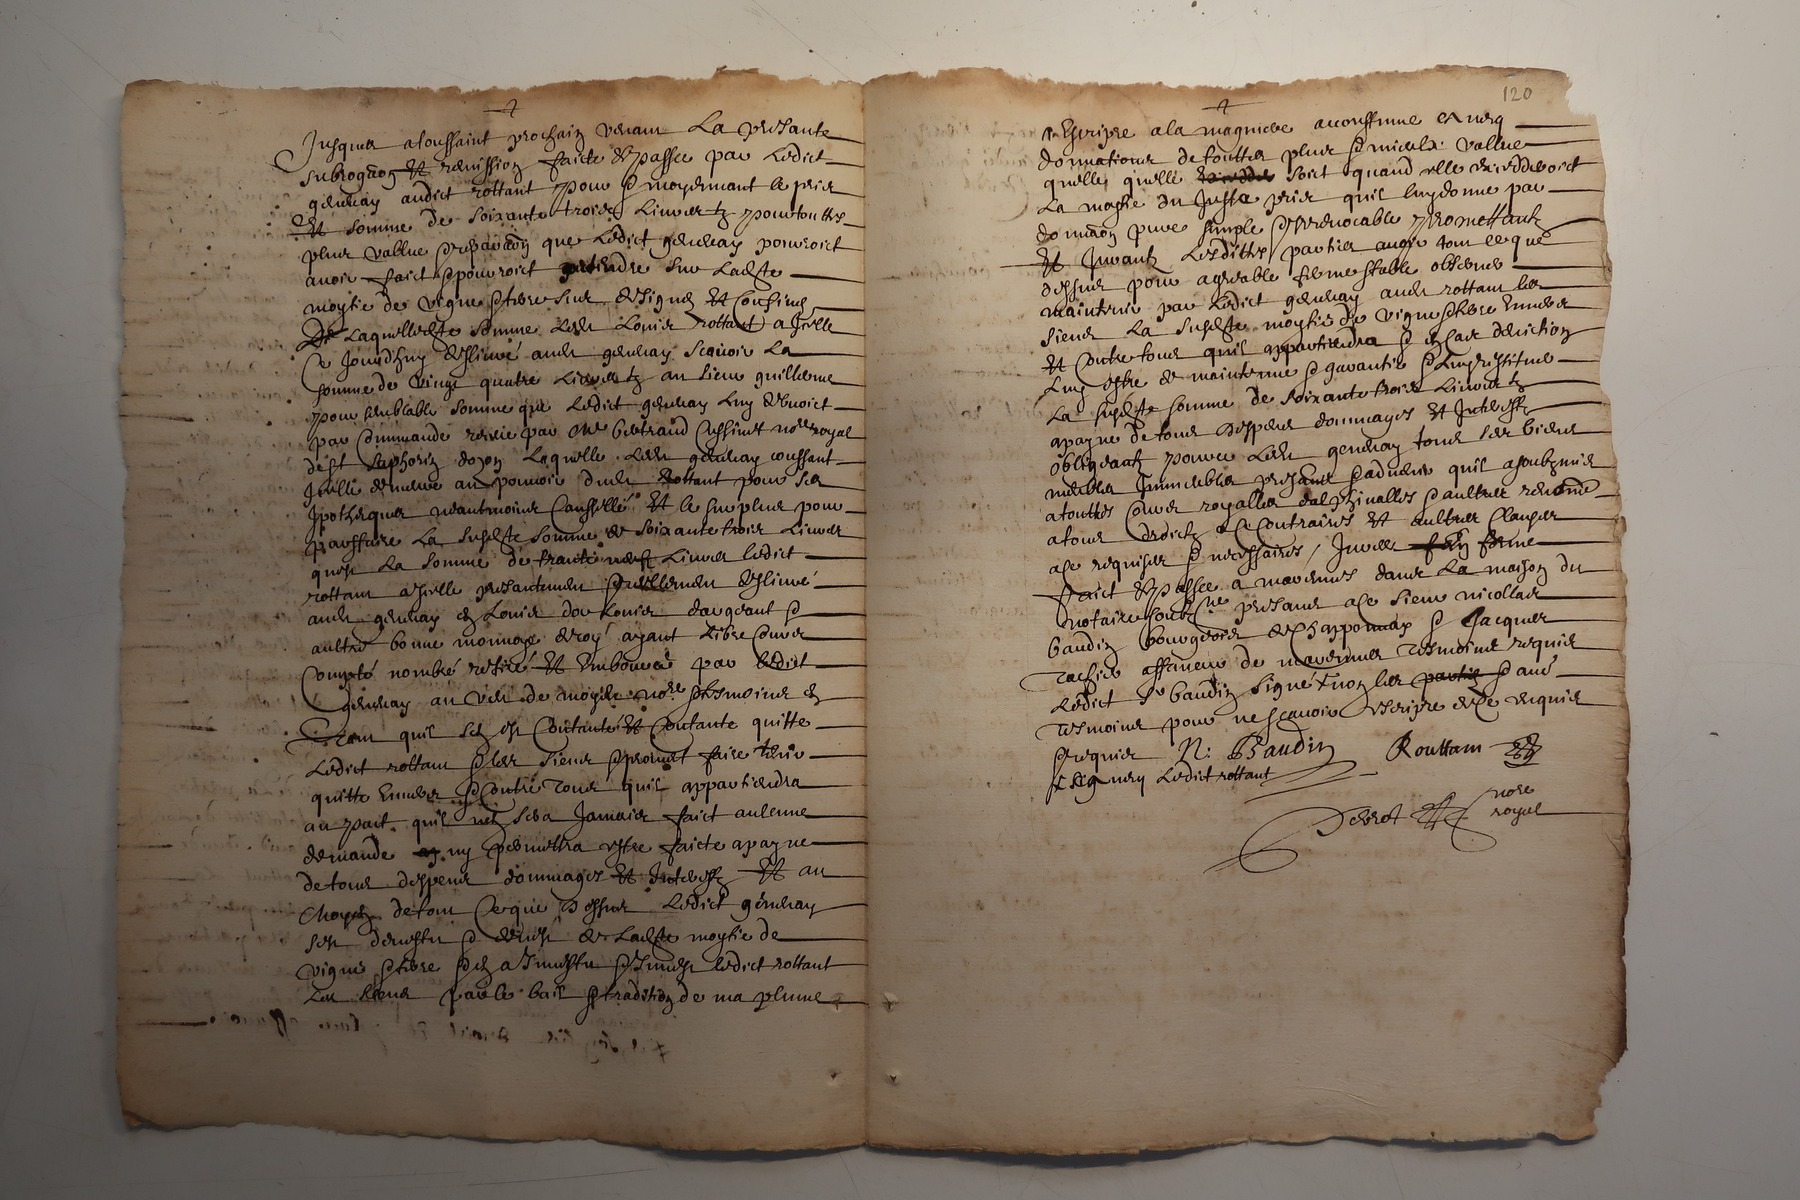 Jusques a toussaint prochain venant La presante
subrogaon Et remission faicte & passee par Ledict
genevay audict rottant pour & moyennant le pris
Et somme de soixante trois Livres tz pour touttes
plus vallue & reparaon que Ledict genevay pouvroict
avoir faict & pouvroict pretendre sur Ladte
moytie de vigne & terre sus designes Et Confines
De Laquelle dte somme Led Louis rottant a Icelle
Ce Jourdhuy deslivré aud genevay scavoir La
somme de vingt quatre Livres tz au sieur guillerme
pour semblable somme que Ledict genevay Luy debvoict
par Commande receue par Me bertrand Cussinet nore royal
de st saphorin dozon Laquelle Led genevay conssant
Icelle demeure au pouvoir dud Rottant pour ses
Ipotheques neantmoins Cansellé Et le surplus pour
parffaire La susdte somme de soixante trois Livres
quest La somme de trante neuf Livres ledict
rottant a Icelle presantement & reellement deslivré
aud genevay en Louis dor Louis dargeant &
aultre bonne monnoye de roy ayant Libre Cours
Compté nombré retiré Et Emboursé par Ledict
genevay au veu de moydt nore & tesmoins en
sorte quil sen est Contanté Et Contante quitte
Ledict rottant & les siens & promet faire tenir
quitte Envers & Contre tous quil appartiendra
au pact quil nen sera Jamais faict aulcune
demande ny permettra estre faicte apayne
de tous despens dommages Et Interestz Et au
Moyen de tout Ce que dessus Ledict genevay
sest devestu & devest de Ladte moytie de
vigne & terre & en a Investu & Invest ledict rottant
Les siens par le bail & tradition de ma plume
120
a Escripre a la magniere accoustume en verq
donnations de touttes plus & mieulx vallue
quelle quelle soict quand elle excedderoict
La moytie du Juste pris quil luy donne par
donnaon pure simple & Irrevocable promettantz
Et Jurantz Lesdittes parties avoir tout ce que
dessus pour agreable ferme stable observer
maintenir par Ledict genevay aud rottant les
siens La susdte moytie de vigne & terre Envers
Et Contre tous quil appartiendra & en Cas deviction
Luy estre de maintenue & garantie & Luy restitue
La susdte somme de soixante trois Livres tz
apayne de tous despens dommages Et Interestz
obligeantz pource Led genevay tous ses biens
meubles Immeubles presants & advenir quil a soubzmis
a touttes Cours royalles dalphinalles & aultres renoncé
a tous droictz a Ce Contraires Et aultres Clauses
a Ce requises & necessaires / Jurees
faict & passee a marennes dans La maison du
notaire soubzne presants a Ce sieur nicollas
baudin bourgeois de Chapponnay & Jacques
Ledict sr baudin signé & non les parties & aue
tesmoins pour ne scavoir escripre de Ce enquis
& requis N: Baudin Routtam
& signera Ledict rottant
Perrot nore
royal